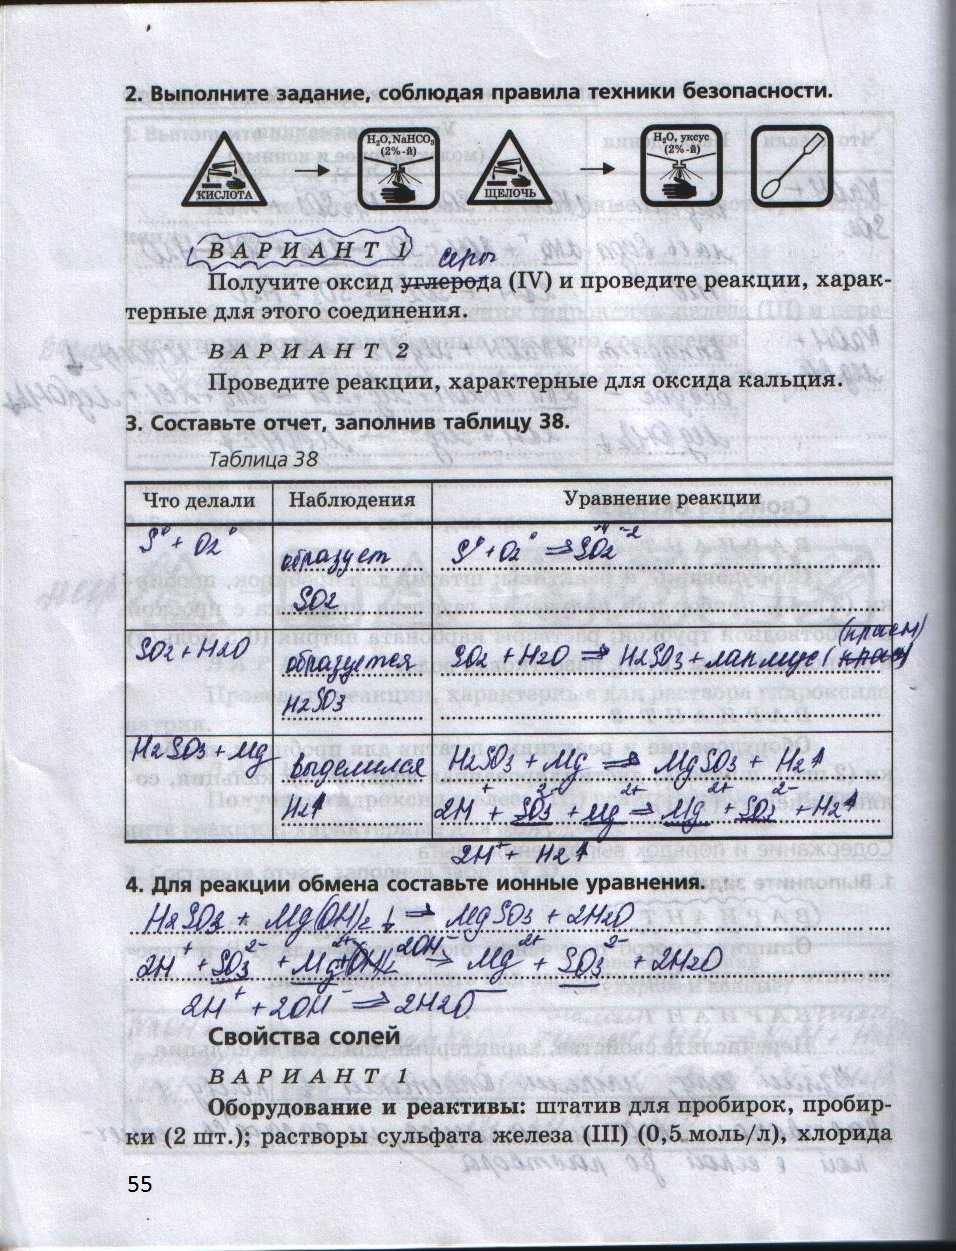 2. Выполните задание, соблюдая правила техники безопасности.
КИСЛОТА
H₂O, NaHCO₃
(2%-й)
ЩЕЛОЧЬ
H₂O, уксус
(2%-й)
ВАРИАНТ 1
серы
Получите оксид углерода (IV) и проведите реакции, харак-
терные для этого соединения.
ВАРИАНТ 2
Проведите реакции, характерные для оксида кальция.
3. Составьте отчет, заполнив таблицу 38.
Таблица 38
Что делали Наблюдения Уравнение реакции
S⁰ + O₂⁰ образует S⁰ + O₂⁰ ⇒ SO₂⁻²
SO₂
(красн)
SO₂ + H₂O образуется SO₂ + H₂O ⇒ H₂SO₃ + лакмус (красн)
H₂SO₃
H₂SO₃ + Mg выделился H₂SO₃ + Mg ⇒ MgSO₃ + H₂↑
H₂↑ 2H⁺ + SO₃²⁻ + Mg²⁺ ⇒ Mg²⁺ + SO₃²⁻ + H₂↑
2H⁺ + H₂↑
4. Для реакции обмена составьте ионные уравнения.
H₂SO₃ + Mg(OH)₂↓ ⇒ MgSO₃ + 2H₂O
2H⁺ + SO₃²⁻ + Mg²⁺ 2OH⁻ → Mg²⁺ + SO₃²⁻ + 2H₂O
2H⁺ + 2OH⁻ ⇒ 2H₂O
Свойства солей
ВАРИАНТ 1
Оборудование и реактивы: штатив для пробирок, пробир-
ки (2 шт.); растворы сульфата железа (III) (0,5 моль/л), хлорида
55